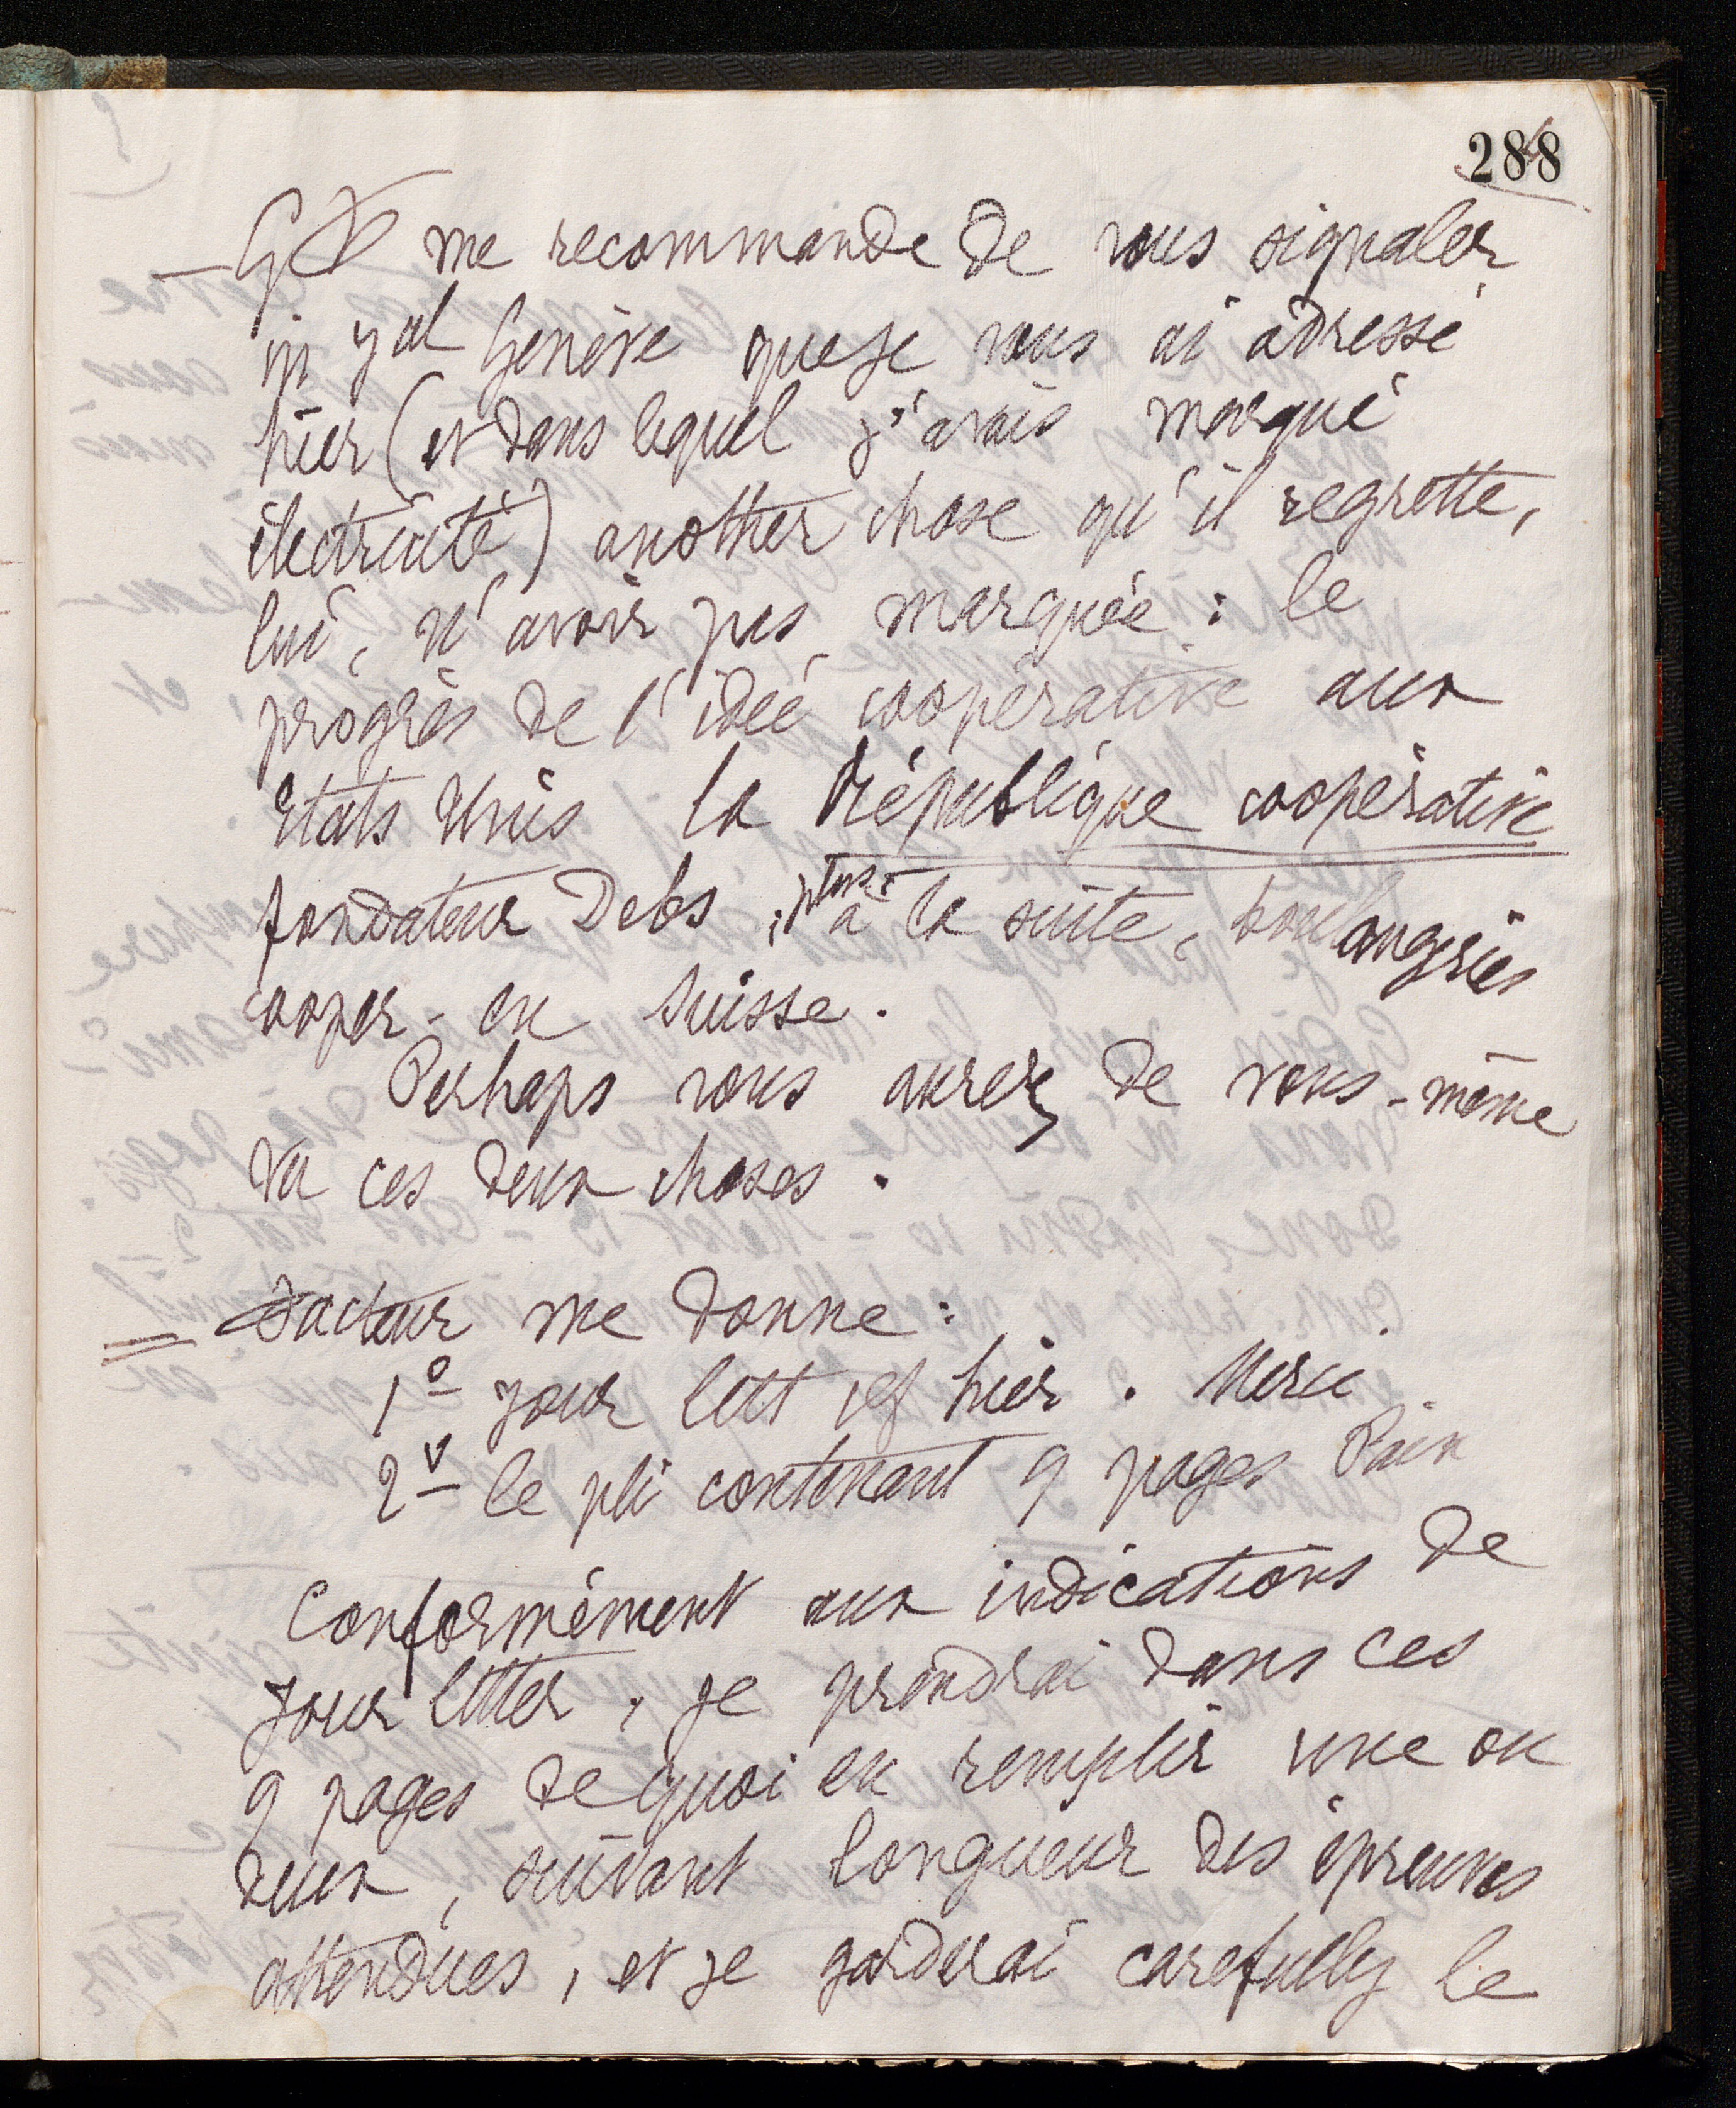 288
— GD me recommande de vous signaler
in jal Genève que je vous ai adressé
hier (et dans lequel j'avais marqué
électricité) another chose qu'il regrette,
lui, n'avoir pas marquée : le
progrès de l'idée coopérative aux
Etats Unis la République coopérative
fondateur Debs, plus à la suite, boulangeries
cooper. en Suisse.
Perhaps vous aurez de vous-même
vu ces deux choses.
= Facteur me donne :
1º your lett of hier. Merci
2º le pli contenant 9 pages Pain
Conformément aux indications de
your letter, je prendrai dans ces
9 pages de quoi en remplir une ou
deux, suivant longueur des épreuves
attendues, et je garderai carefully le